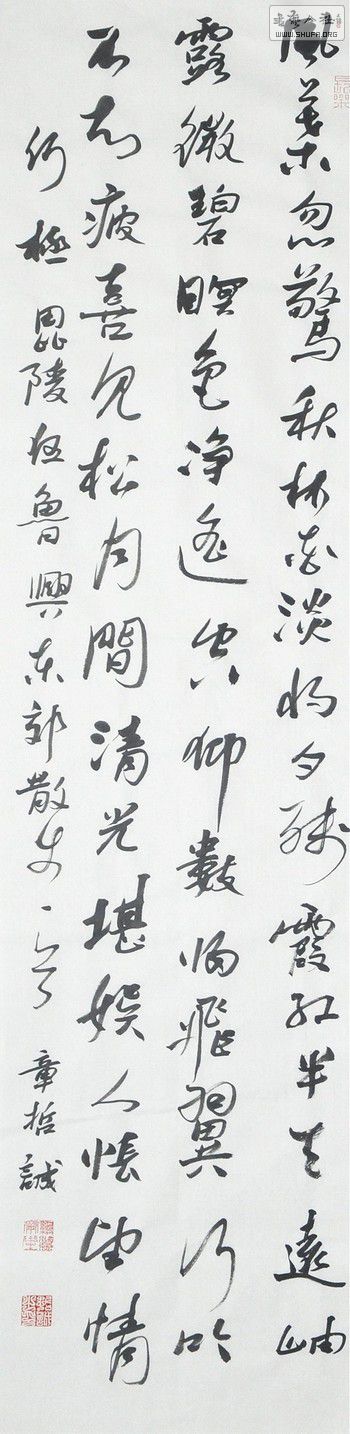 WWW.SHUFA.ORG
風葉忽驚秋林淡將夕殘霞紅半天遠岫
露微碧暝色淨遙空仰數歸飛翼行吟
不知疲喜見松月間清光堪娛人悵望情
何極 毘陵魯興東郊散步一首 章哲誠